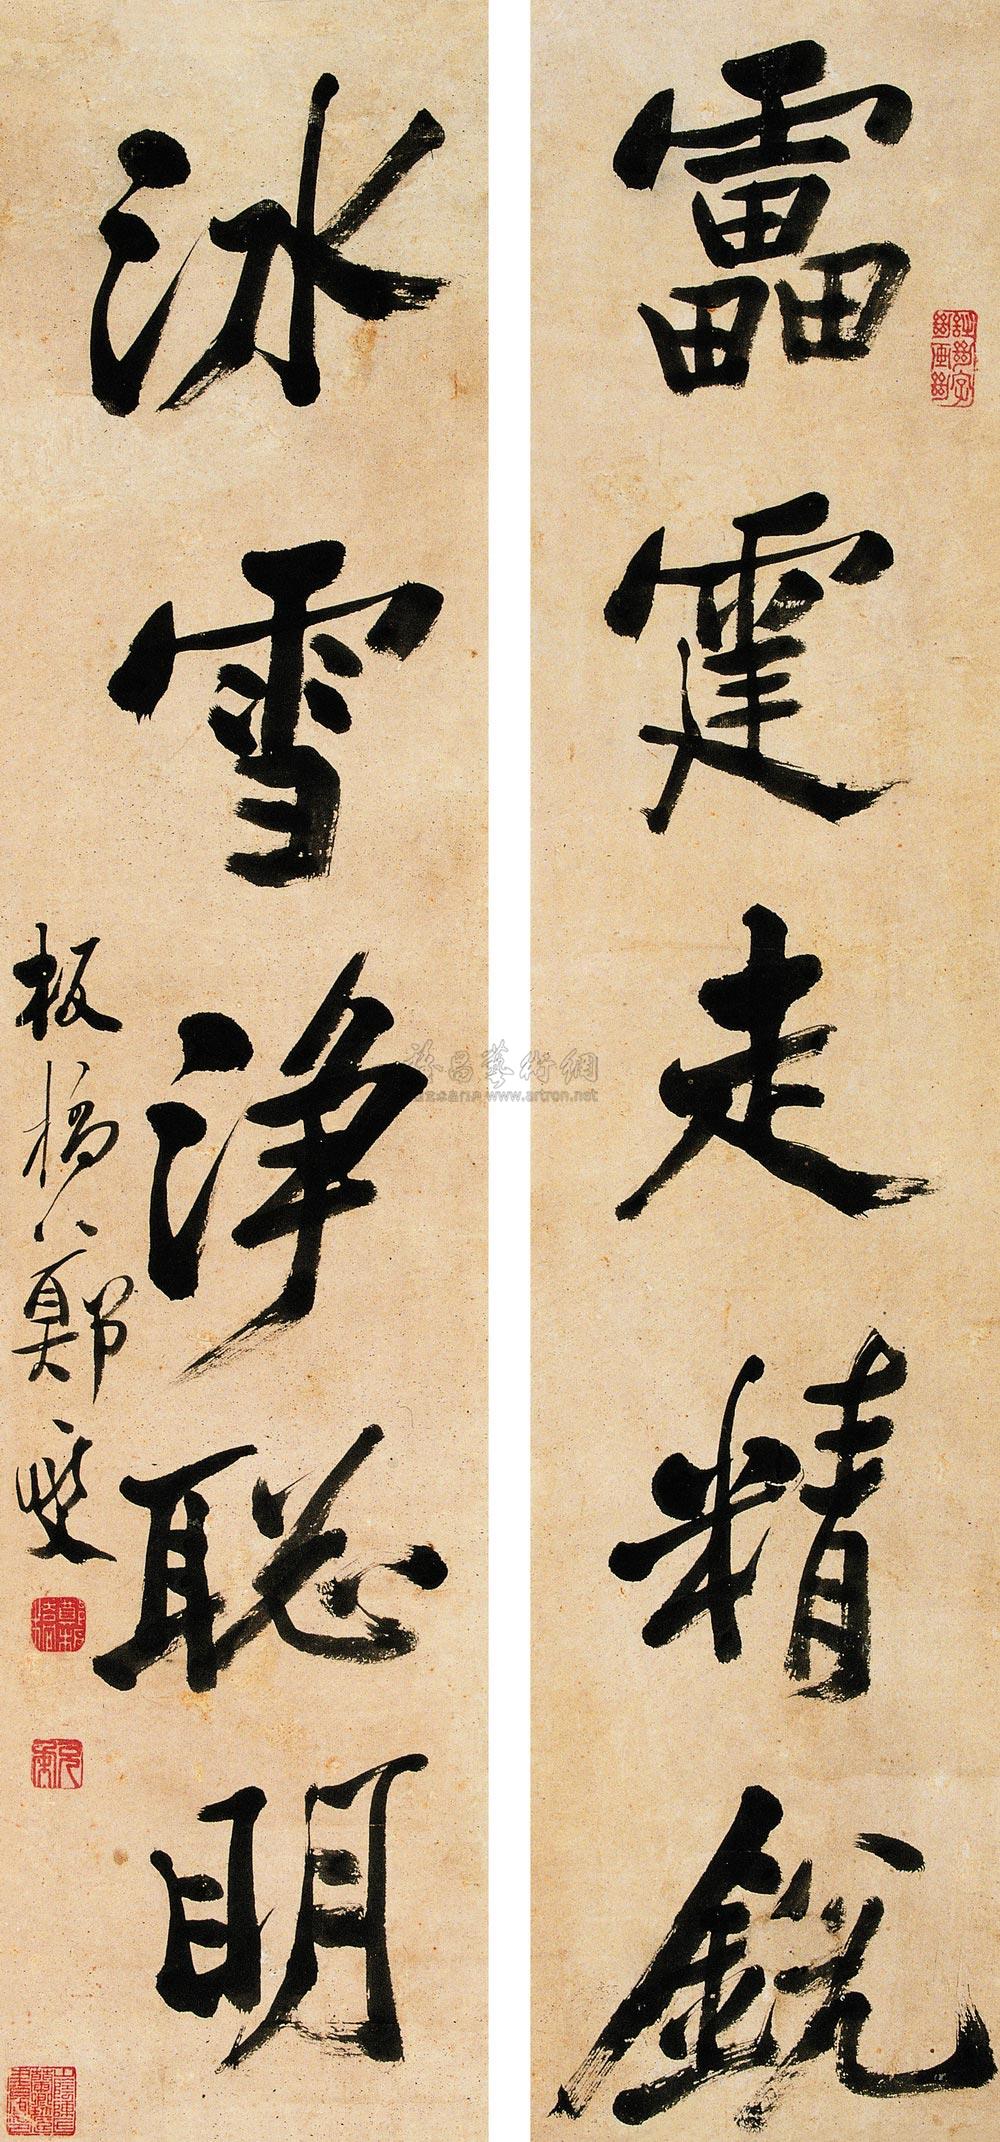 靁霆走精銳
冰雪淨聰明
板橋鄭燮
www.artron.net